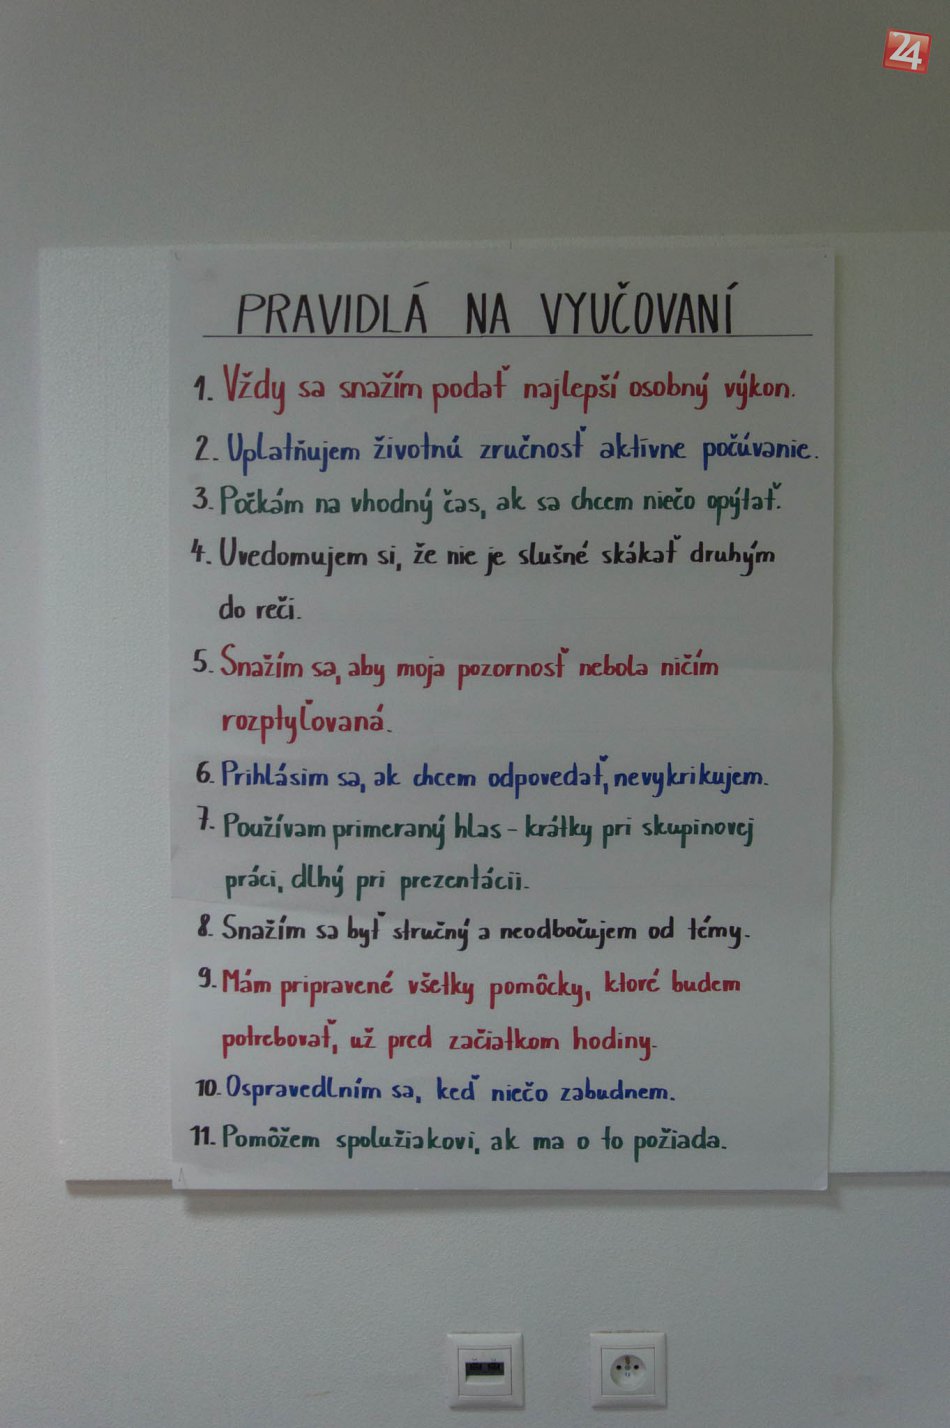 24
PRAVIDLÁ NA VYUČOVANÍ
1. Vždy sa snažím podať najlepší osobný výkon.
2. Uplatňujem životnú zručnosť aktívne počúvanie.
3. Počkám na vhodný čas, ak sa chcem niečo opýtať.
4. Uvedomujem si, že nie je slušné skákať druhým
do reči.
5. Snažím sa, aby moja pozornosť nebola ničím
rozptyľovaná.
6. Prihlásim sa, ak chcem odpovedať, nevykrikujem.
7. Používam primeraný hlas - krátky pri skupinovej
práci, dlhý pri prezentácii.
8. Snažím sa byť stručný a neodbočujem od témy.
9. Mám pripravené všetky pomôcky, ktoré budem
potrebovať, už pred začiatkom hodiny.
10. Ospravedlním sa, keď niečo zabudnem.
11. Pomôžem spolužiakovi, ak ma o to požiada.